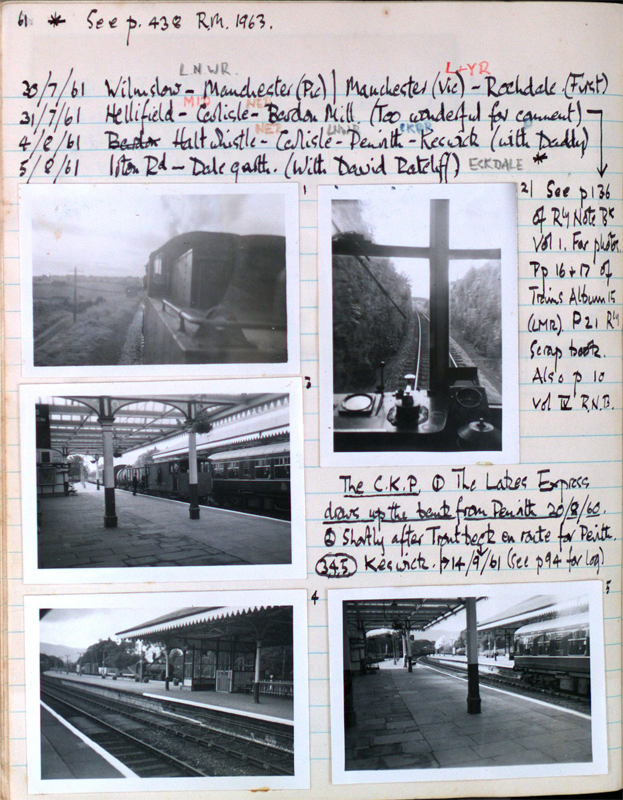 61 * See p. 438 R.M. 1963.
L.N.W.R. L+YR
20/7/61 Wilmslow - Manchester (Pic) | Manchester (Vic) - Rochdale. (First)
MID NER
31/7/61 Hellifield - Carlisle - Bardon Mill. (Too wonderful for comment)
NER LNWR CKPR
4/8/61 Haltwhistle - Carlisle - Penrith - Keswick (with Daddy)
5/8/61 Irton Rd - Dalegarth. (With David Ratcliff) ESKDALE *
1
2
See p 136
of Rly Note Bk
Vol 1. For photos
Pp 16 + 17 of
Trains Album 15
(LMR). P 21 Rly
Scrap book.
Also p 10
Vol IV R.N.B.
3
The C.K.P. ① The Lakes Express
draws up the bank from Penrith 20/8/60.
② Shortly after Troutbeck en route for Penrith.
345 Keswick. 14/9/61 (See p94 for log)
4
5